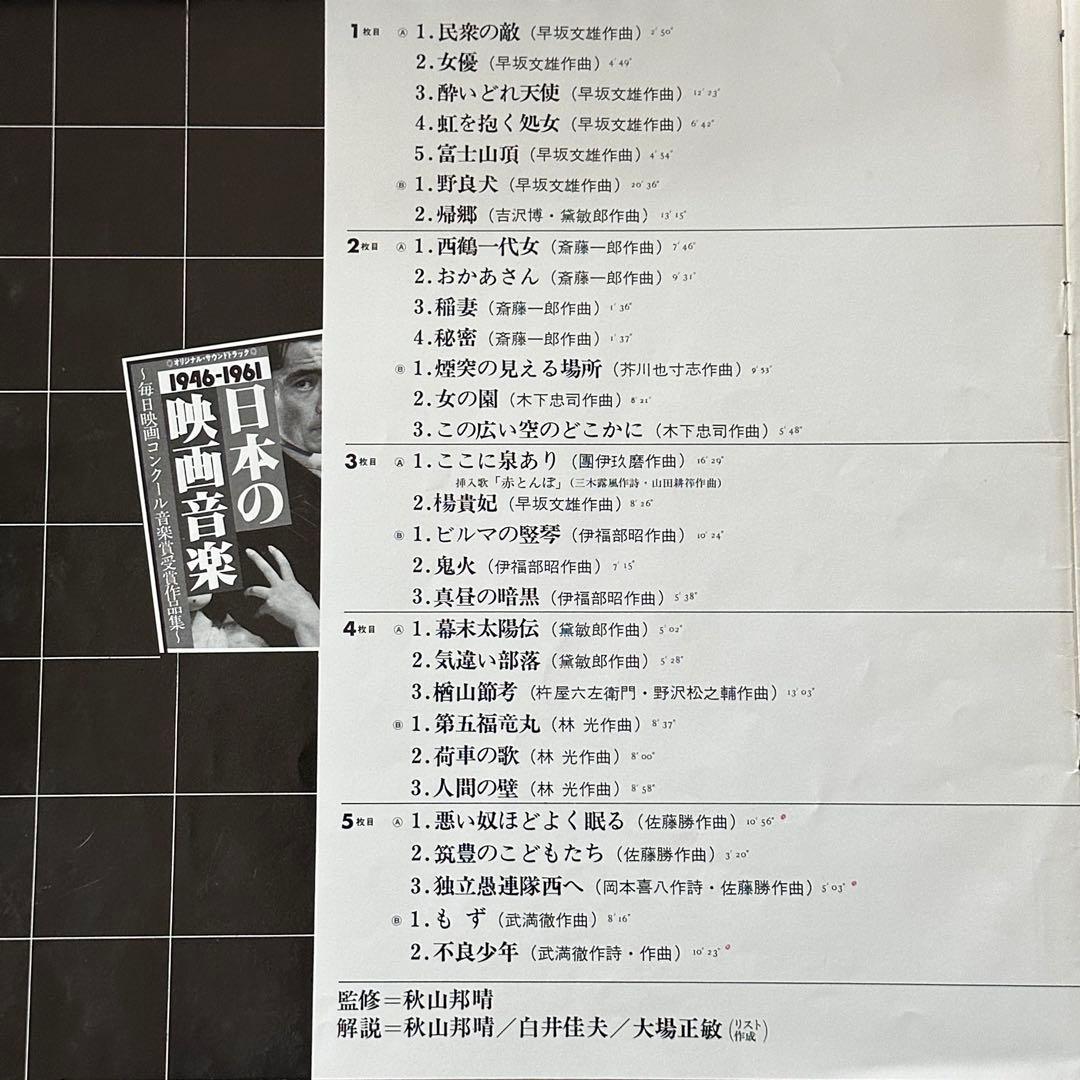 1枚目 Ⓐ 1.民衆の敵（早坂文雄作曲）2′50″
2.女優（早坂文雄作曲）4′49″
3.酔いどれ天使（早坂文雄作曲）12′23″
4.虹を抱く処女（早坂文雄作曲）6′42″
5.富士山頂（早坂文雄作曲）4′54″
Ⓑ 1.野良犬（早坂文雄作曲）20′36″
2.帰郷（吉沢博・黛敏郎作曲）13′15″
2枚目 Ⓐ 1.西鶴一代女（斎藤一郎作曲）7′46″
2.おかあさん（斎藤一郎作曲）9′31″
3.稲妻（斎藤一郎作曲）1′36″
4.秘密（斎藤一郎作曲）1′37″
Ⓑ 1.煙突の見える場所（芥川也寸志作曲）9′53″
2.女の園（木下忠司作曲）8′21″
3.この広い空のどこかに（木下忠司作曲）5′48″
3枚目 Ⓐ 1.ここに泉あり（團伊玖磨作曲）16′29″
挿入歌「赤とんぼ」（三木露風作詩・山田耕筰作曲）
2.楊貴妃（早坂文雄作曲）8′26″
Ⓑ 1.ビルマの竪琴（伊福部昭作曲）10′24″
2.鬼火（伊福部昭作曲）7′15″
3.真昼の暗黒（伊福部昭作曲）5′38″
4枚目 Ⓐ 1.幕末太陽伝（黛敏郎作曲）5′02″
2.気違い部落（黛敏郎作曲）5′28″
3.楢山節考（杵屋六左衛門・野沢松之輔作曲）13′03″
Ⓑ 1.第五福竜丸（林 光作曲）8′37″
2.荷車の歌（林 光作曲）8′00″
3.人間の壁（林 光作曲）8′58″
5枚目 Ⓐ 1.悪い奴ほどよく眠る（佐藤勝作曲）10′56″
2.筑豊のこどもたち（佐藤勝作曲）3′20″
3.独立愚連隊西へ（岡本喜八作詩・佐藤勝作曲）5′03″
Ⓑ 1.も ず（武満徹作曲）8′16″
2.不良少年（武満徹作詩・作曲）10′23″
監修=秋山邦晴
解説=秋山邦晴／白井佳夫／大場正敏（リスト作成）
◎オリジナル・サウンドトラック◎
1946-1961
日本の
映画音楽
〜毎日映画コンクール音楽賞受賞作品集〜